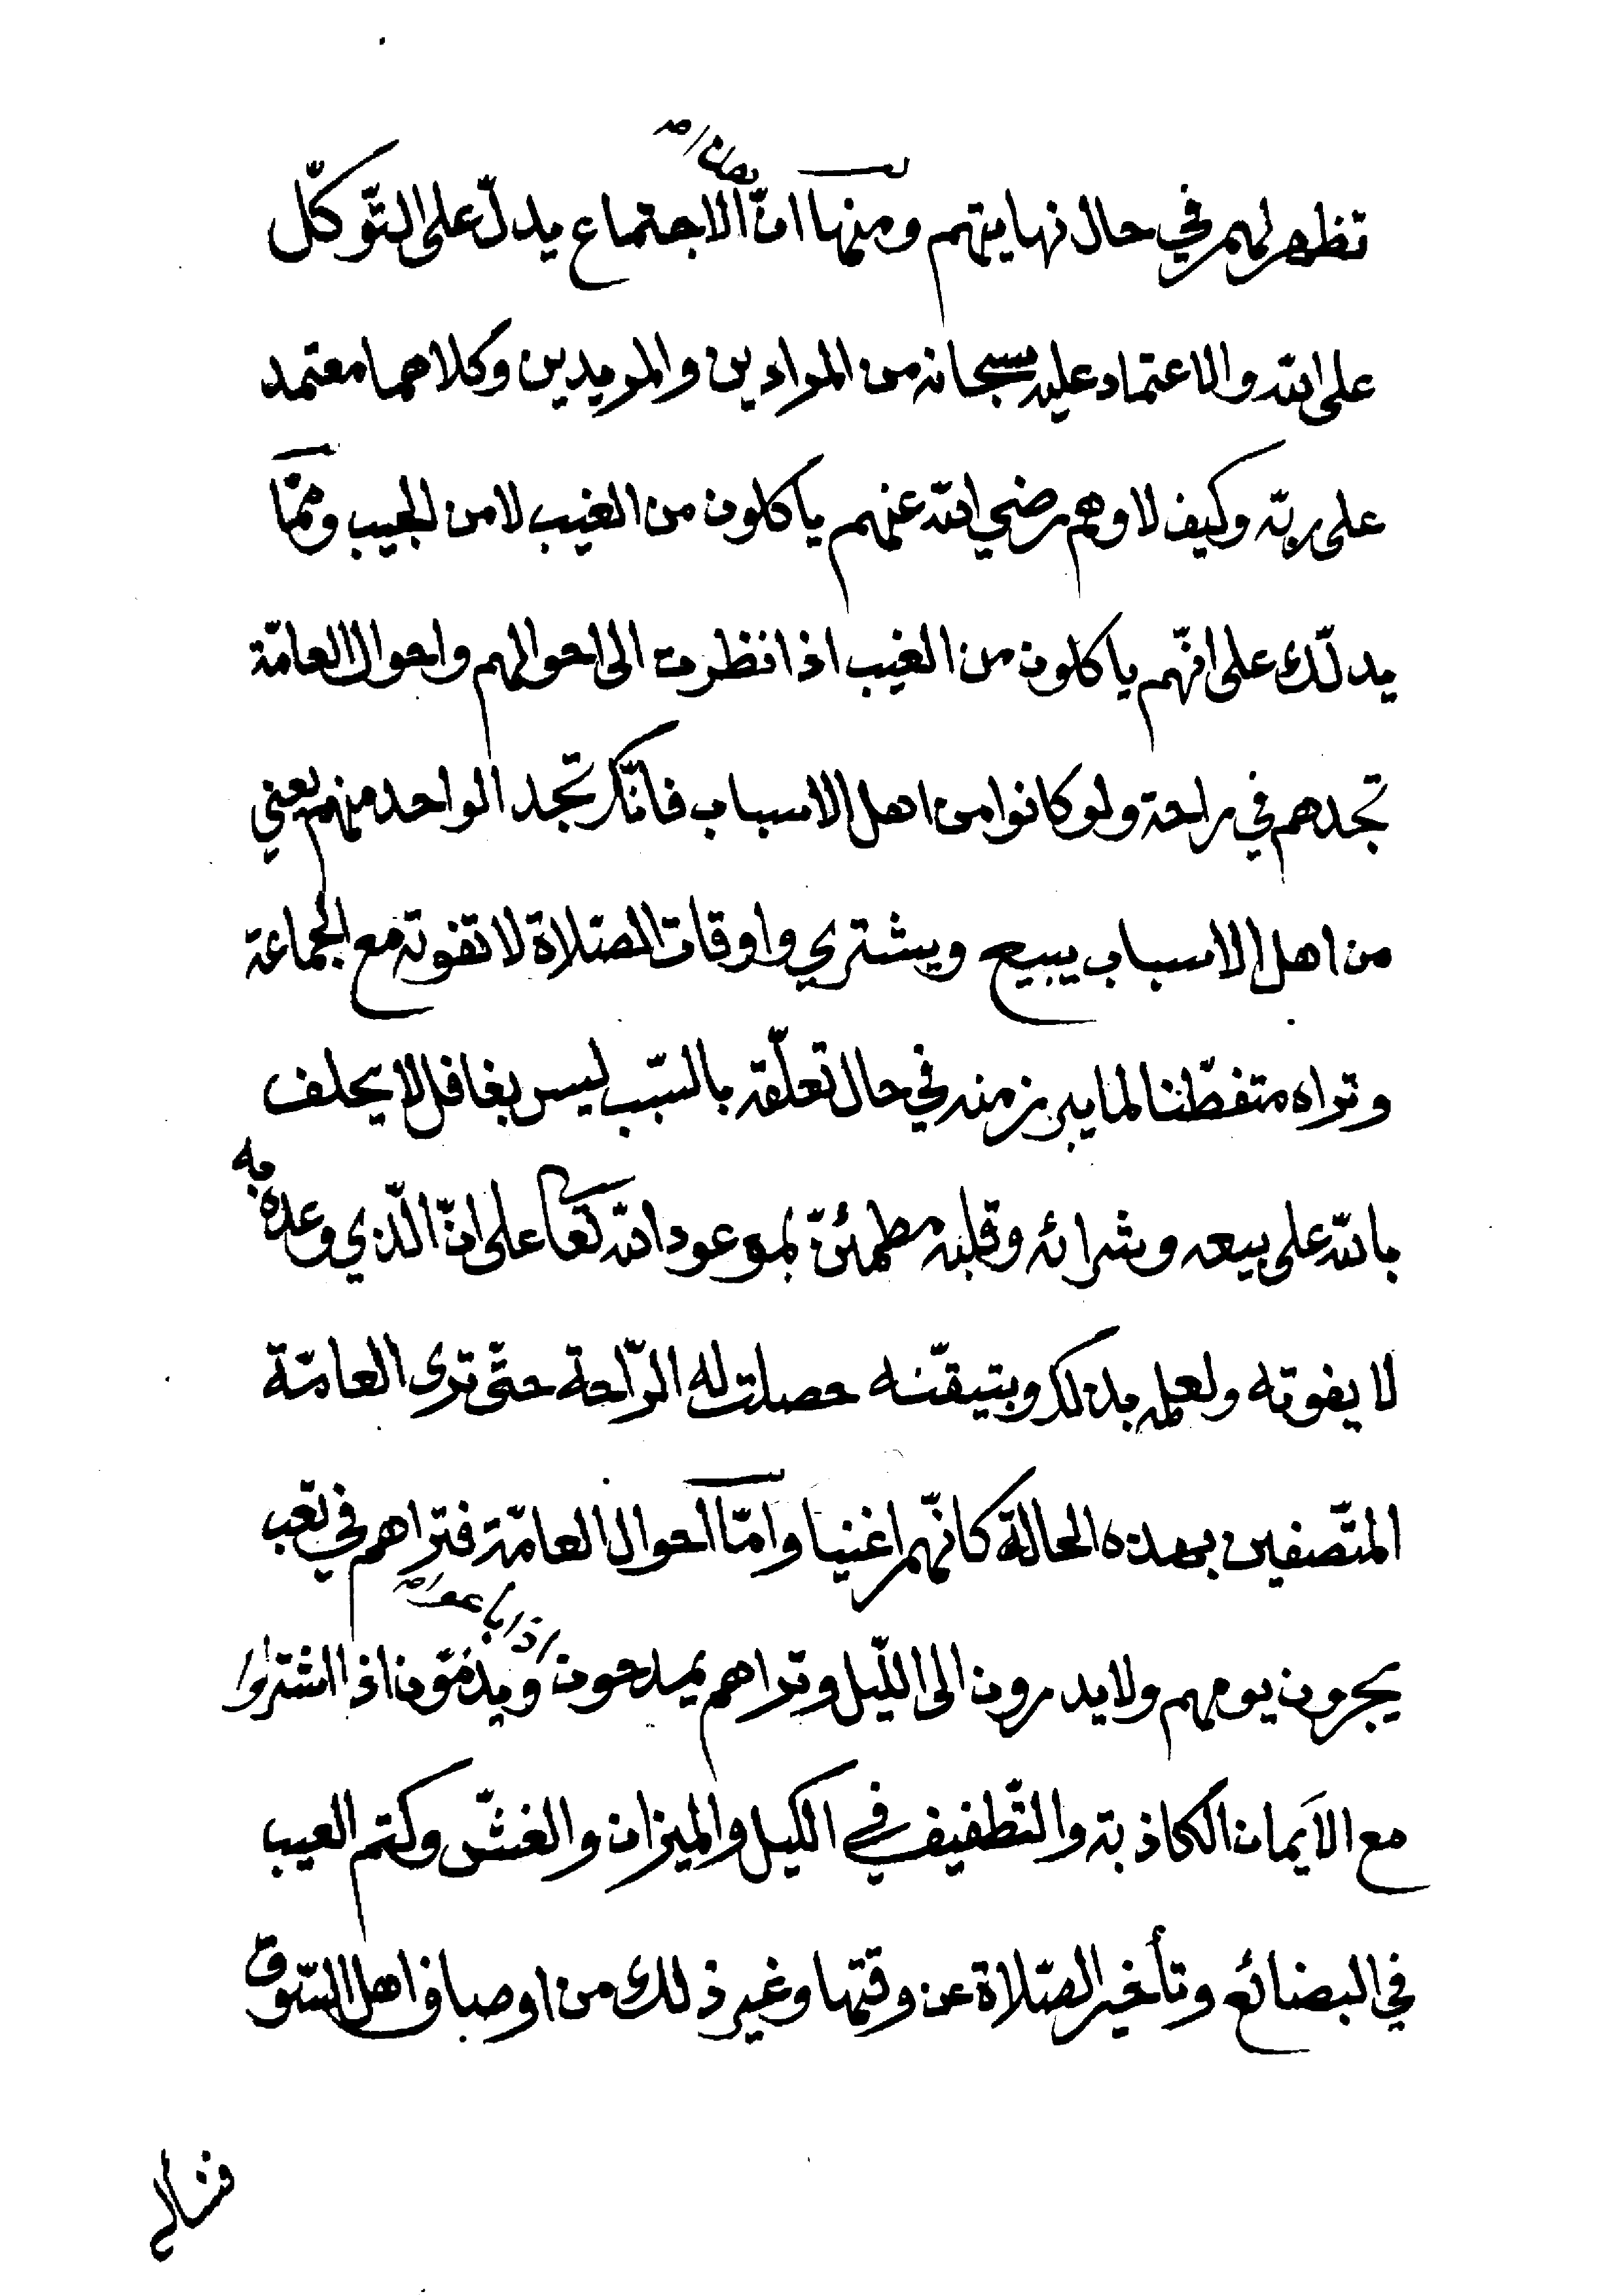 تظهر لهم في حال نهايتهم ومنها انّ الاجتماع يدلّ على التّوكّل
على الله والاعتماد عليه سبحانه من المرادين والمريدين وكلاهما معتمد
على ربّه وكيف لا وهم رضي الله عنهم ياكلون من الغيب لا من الجيب وممّا
يدلّك على انّهم ياكلون من الغيب اذا نظرت الى احوالهم واحوال العامّة
تجدهم في راحة ولو كانوا من اهل الاسباب فانّك تجد الواحد منهم يعني
من اهل الاسباب يبيع ويشتري واوقات الصّلاة لا تفوته مع الجماعة
وتراه متفطّنا لما يبرز منه في حال تعلّقه بالسّبب ليس بغافل لا يحلف
بالله على بيعه وشرائه وقلبه مطمئنّ بموعود الله تعا على انّ الّذي وعده به
لا يفوته ولعلمه بذلك وبتيقّنه حصلت له الرّاحة حتّى ترى العامّة
المتّصفين بهذه الحالة كانّهم اغنيا وامّا احوال العامّة فتراهم في تعب
يجرون يومهم ولا يدرون الى اللّيل وتراهم يمدحون اذا باعوا ويذمّون اذا اشتروا
مع الاَيمان الكاذبة والتّطفيف في الكيل والميزان والغشّ وكتم العيب
في البضائع وتأخير الصّلاة عن وقتها وغير ذلك من اوصاف اهل السّوق